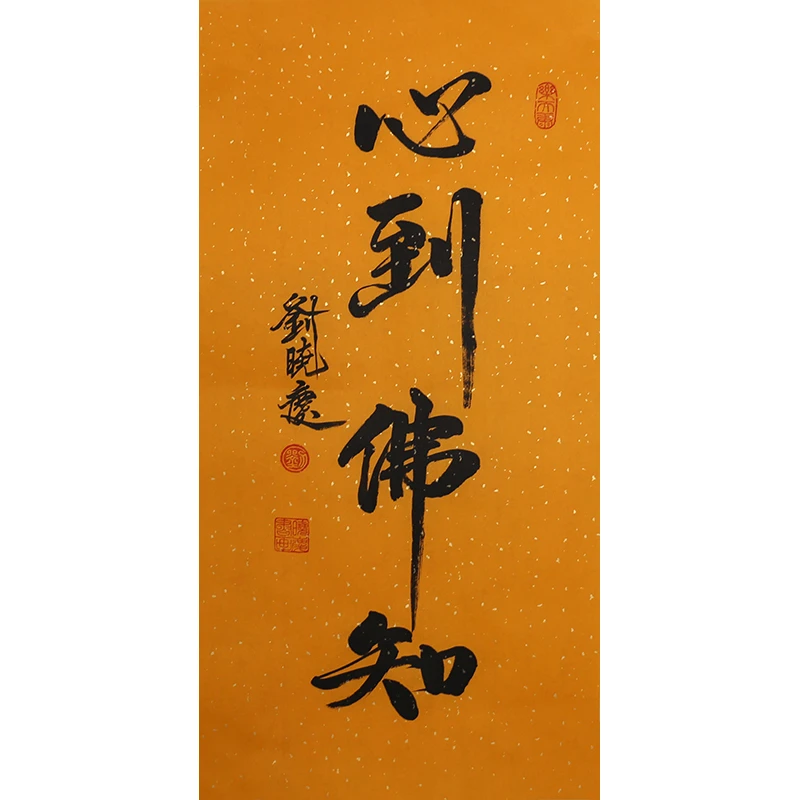 心到佛知
劉曉慶